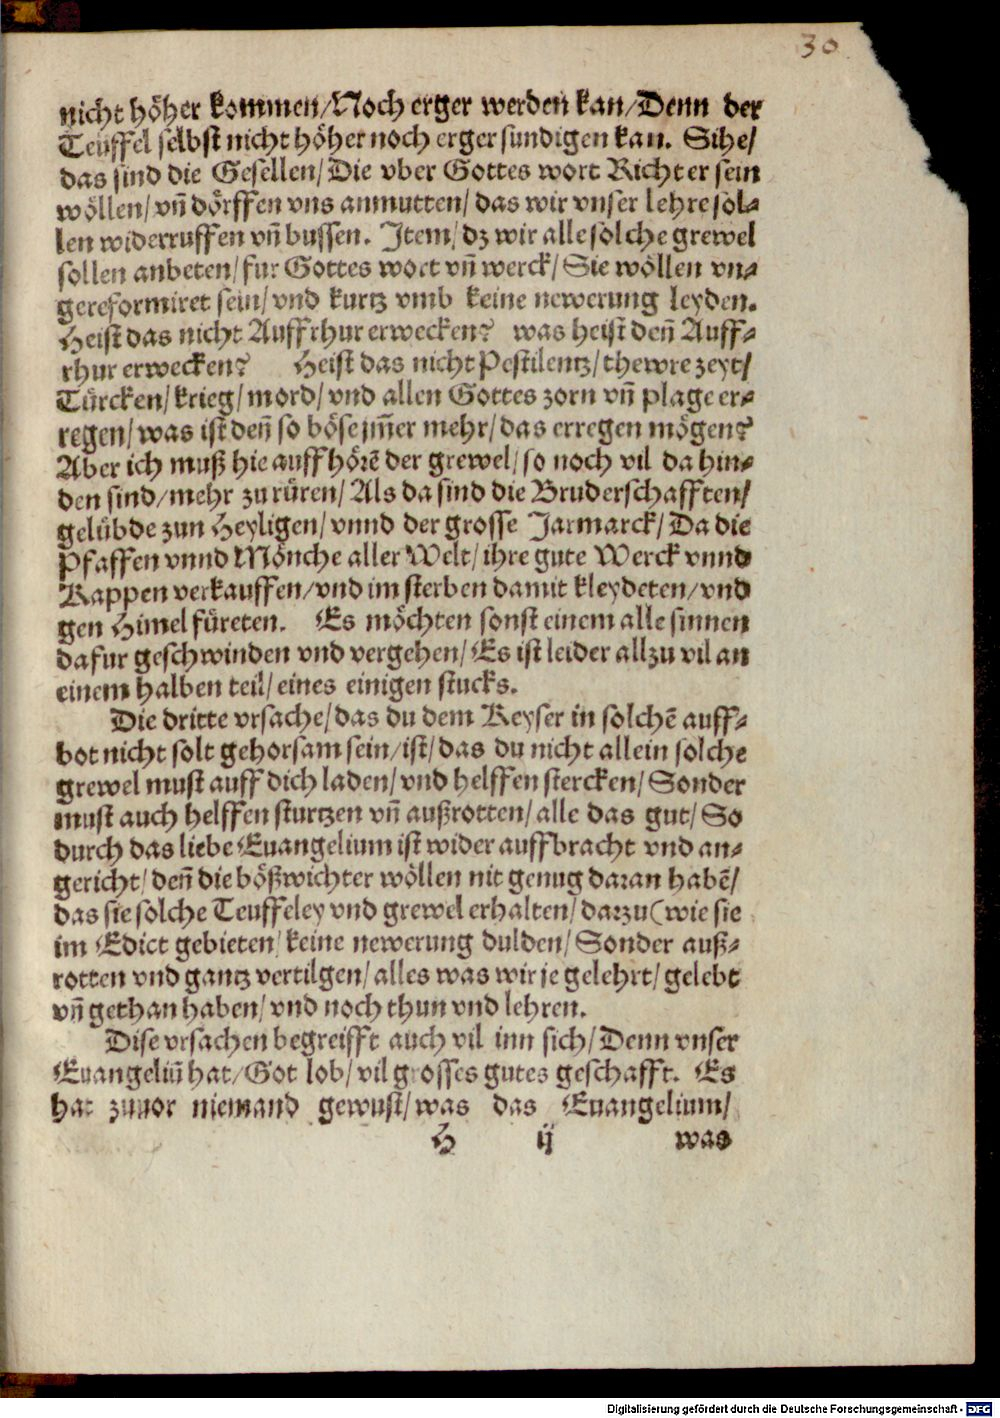 30
nicht höher kommen/Noch erger werden kan/Denn der
Teuffel selbst nicht höher noch erger sundigen kan. Sihe/
das sind die Gesellen/Die vber Gottes wort Richter sein
wöllen/vñ dörffen vns anmutten/das wir vnser lehre sol-
len widerruffen vñ bussen. Item/dz wir alle solche grewel
sollen anbeten/fur Gottes wort vñ werck/Sie wöllen vn-
gereformiret sein/vnd kurtz vmb keine newerung leyden.
Heist das nicht Auffrhur erwecken? was heist deñ Auff-
rhur erwecken? Heist das nicht Pestilentz/thewre zeyt/
Türcken/krieg/mord/vnd allen Gottes zorn vñ plage er-
regen/was ist deñ so böse jm̃er mehr/das erregen mögen?
Aber ich muß hie auff hörẽ der grewel/so noch vil da hin-
den sind/mehr zu rüren/Als da sind die Bruderschafften/
gelübde zun Heyligen/vnnd der grosse Jarmarck/Da die
Pfaffen vnnd Mönche aller Welt/ihre gute Werck vnnd
Kappen verkauffen/vnd im sterben damit kleydeten/vnd
gen Himel füreten. Es möchten sonst einem alle sinnen
dafur geschwinden vnd vergehen/Es ist leider allzu vil an
einem halben teil/eines einigen stucks.
Die dritte vrsache/das du dem Keyser in solchẽ auff-
bot nicht solt gehorsam sein/ist/das du nicht allein solche
grewel must auff dich laden/vnd helffen stercken/Sonder
must auch helffen sturtzen vñ außrotten/alle das gut/So
durch das liebe Euangelium ist wider auffbracht vnd an-
gericht/deñ die bößwichter wöllen nit genug daran habẽ/
das sie solche Teuffeley vnd grewel erhalten/darzu(wie sie
im Edict gebieten/keine newerung dulden/Sonder auß-
rotten vnd gantz vertilgen/alles was wir je gelehrt/gelebt
vñ gethan haben/vnd noch thun vnd lehren.
Dise vrsachen begreifft auch vil inn sich/Denn vnser
Euangeliũ hat/Got lob/vil grosses gutes geschafft. Es
hat zuuor niemand gewust/was das Euangelium/
H ij was
Digitalisierung gefördert durch die Deutsche Forschungsgemeinschaft - DFG